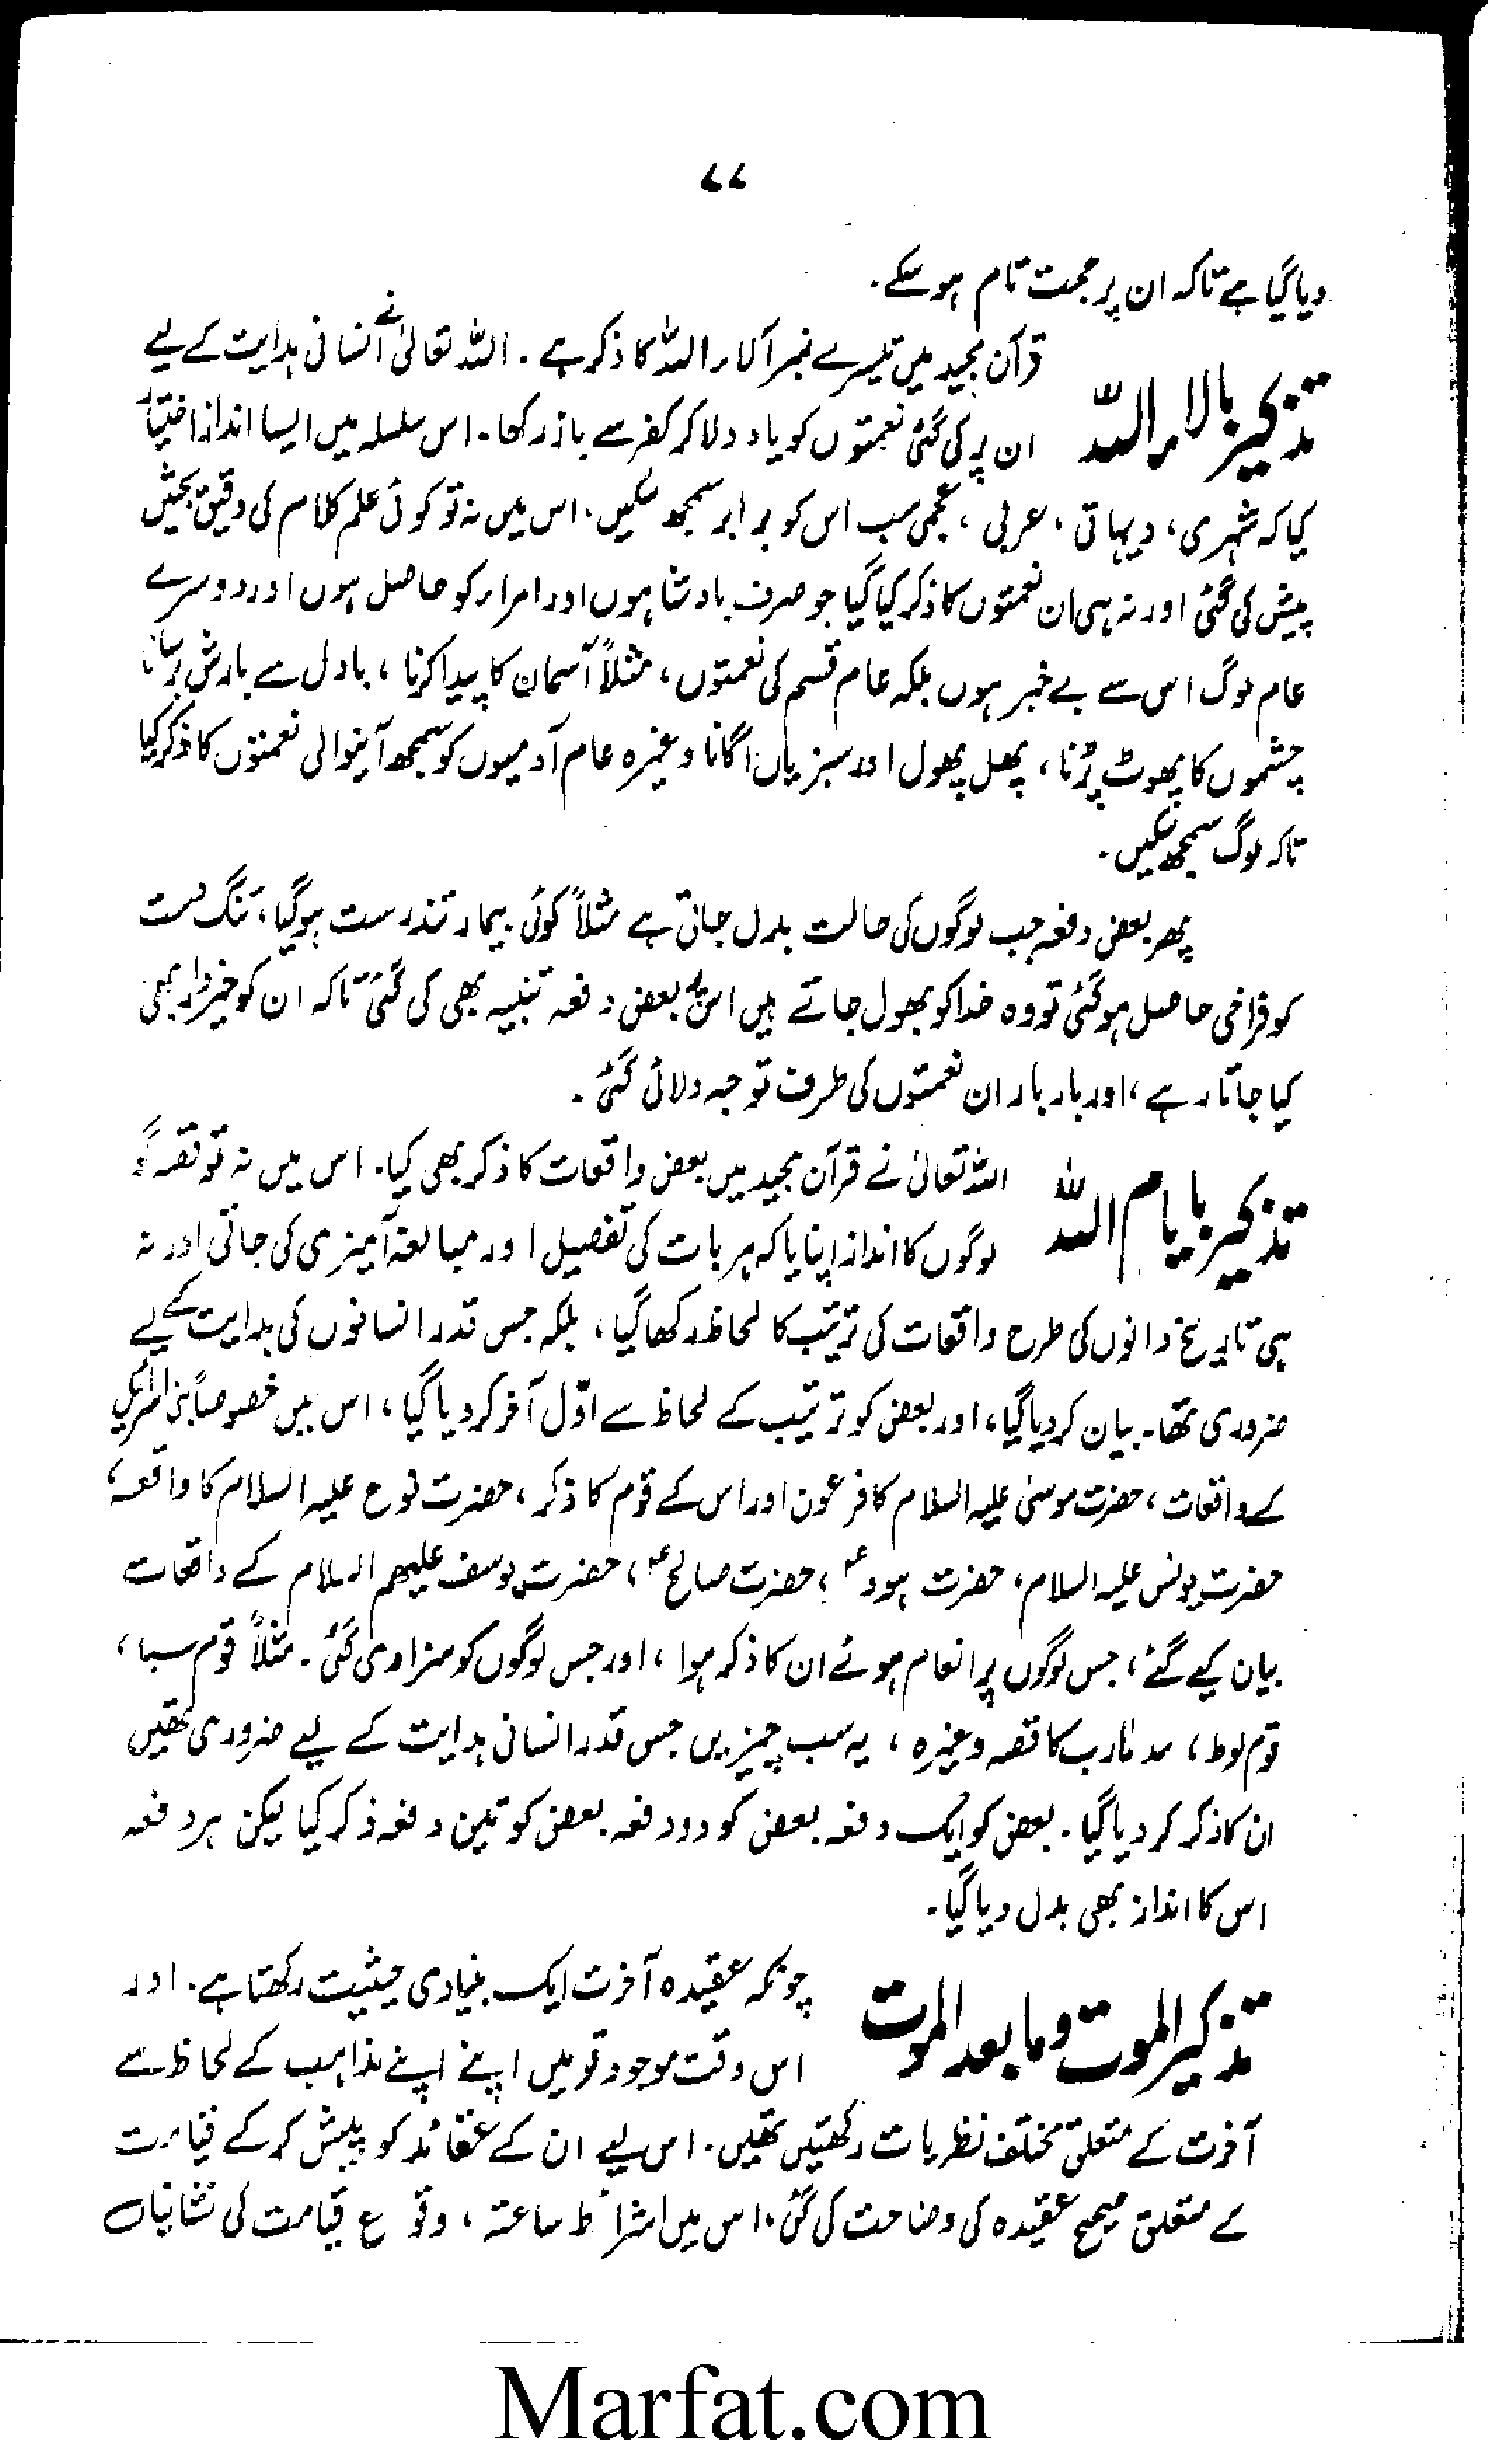 ۷۷
دیا گیا ہے تاکہ ان پر حجت تام ہو سکے۔
تذکیر بالاء اللہ
قرآن مجید میں تیسرے نمبر آلاء اللہ کا ذکر ہے۔ اللہ تعالیٰ نے انسانی ہدایت کے لیے
ان پر کی گئی نعمتوں کو یاد دلا کر کفر سے باز رکھا۔ اس سلسلہ میں ایسا انداز اختیار
کیا کہ شہری، دیہاتی، عربی، عجمی سب اس کو برابر سمجھ سکیں، اس میں نہ تو کوئی علم کلام کی دقیق بحثیں
پیش کی گئی اور نہ ہی ان نعمتوں کا ذکر کیا گیا جو صرف بادشاہوں اور امراء کو حاصل ہوں اور دوسرے
عام لوگ اس سے بے خبر ہوں بلکہ عام قسم کی نعمتوں، مثلاً آسمان کا پیدا کرنا، بادل سے بارش برسانا
چشموں کا پھوٹ پڑنا، پھل پھول اور سبزیاں اگانا وغیرہ عام آدمیوں کو سمجھ آنیوالی نعمتوں کا ذکر کیا
تاکہ لوگ سمجھ سکیں۔
پھر بعض دفعہ جب لوگوں کی حالت بدل جاتی ہے مثلاً کوئی بیمار تندرست ہو گیا، تنگ دست
کو فراخی حاصل ہو گئی تو وہ خدا کو بھول جاتے ہیں اس پر بعض دفعہ تنبیہ بھی کی گئی تاکہ ان کو خبردار بھی
کیا جاتا رہے، اور بار بار ان نعمتوں کی طرف توجہ دلائی گئی۔
تذکیر بایام اللہ
اللہ تعالیٰ نے قرآن مجید میں بعض واقعات کا ذکر بھی کیا۔ اس میں نہ تو قصہ گو
لوگوں کا انداز اپنایا کہ ہر بات کی تفصیل اور مبالغہ آمیزی کی جاتی اور نہ
ہی تاریخ دانوں کی طرح واقعات کی ترتیب کا لحاظ رکھا گیا، بلکہ جس قدر انسانوں کی ہدایت کے لیے
ضروری تھا۔ بیان کر دیا گیا، اور بعض کو ترتیب کے لحاظ سے اوّل آخر کر دیا گیا، اس میں خصوصاً بنی اسرائیل
کے واقعات، حضرت موسیٰ علیہ السلام کا فرعون اور اس کے قوم کا ذکر، حضرت نوح علیہ السلام کا واقعہ،
حضرت یونس علیہ السلام، حضرت ہودؑ، حضرت صالحؑ، حضرت یوسف علیہم السلام کے واقعات
بیان کیے گئے، جس لوگوں پر انعام ہوئے ان کا ذکر ہوا، اور جس لوگوں کو سزا دی گئی۔ مثلاً قوم سبا،
قوم لوط، سد مارب کا قصہ وغیرہ، یہ سب چیزیں جس قدر انسانی ہدایت کے لیے ضروری تھیں
ان کا ذکر کر دیا گیا۔ بعض کو ایک دفعہ بعض کو دو دفعہ بعض کو تین دفعہ ذکر کیا لیکن ہر دفعہ
اس کا انداز بھی بدل دیا گیا۔
تذکیر الموت وما بعد الموت
چونکہ عقیدہ آخرت ایک بنیادی حیثیت رکھتا ہے۔ اور
اس وقت موجود قومیں اپنے اپنے مذاہب کے لحاظ سے
آخرت کے متعلق مختلف نظریات رکھتیں تھیں۔ اس لیے ان کے عقائد کو پیش کر کے قیامت
کے متعلق صحیح عقیدہ کی وضاحت کی گئی۔ اس میں اشراط ساعتہ، وقوع قیامت کی نشانیاں
Marfat.com